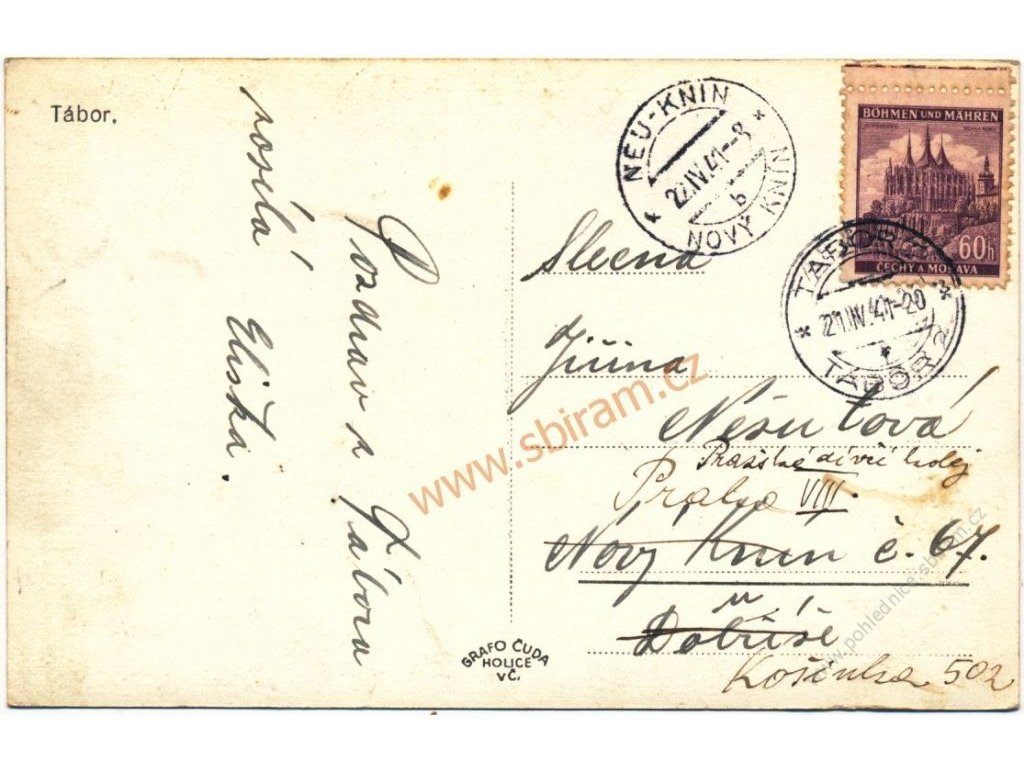 Tábor.
Pozdrav z Tábora
posílá
Eliška.
NEU-KNIN
22.IV.41-8
b
NOVÝ KNÍN
BÖHMEN UND MÄHREN
60h
ČECHY A MORAVA
TÁBOR 2
21.IV.41-20
TÁBOR 2
Slečna
Jiřina
Nesutová
Pražská dívčí kolej
Praha VIII
Nový Knín č. 67.
u
Dobříše
Košinka 502
GRAFO ČUDA
HOLICE
VČ.
www.sbiram.cz
www.pohlednice.sbiram.cz